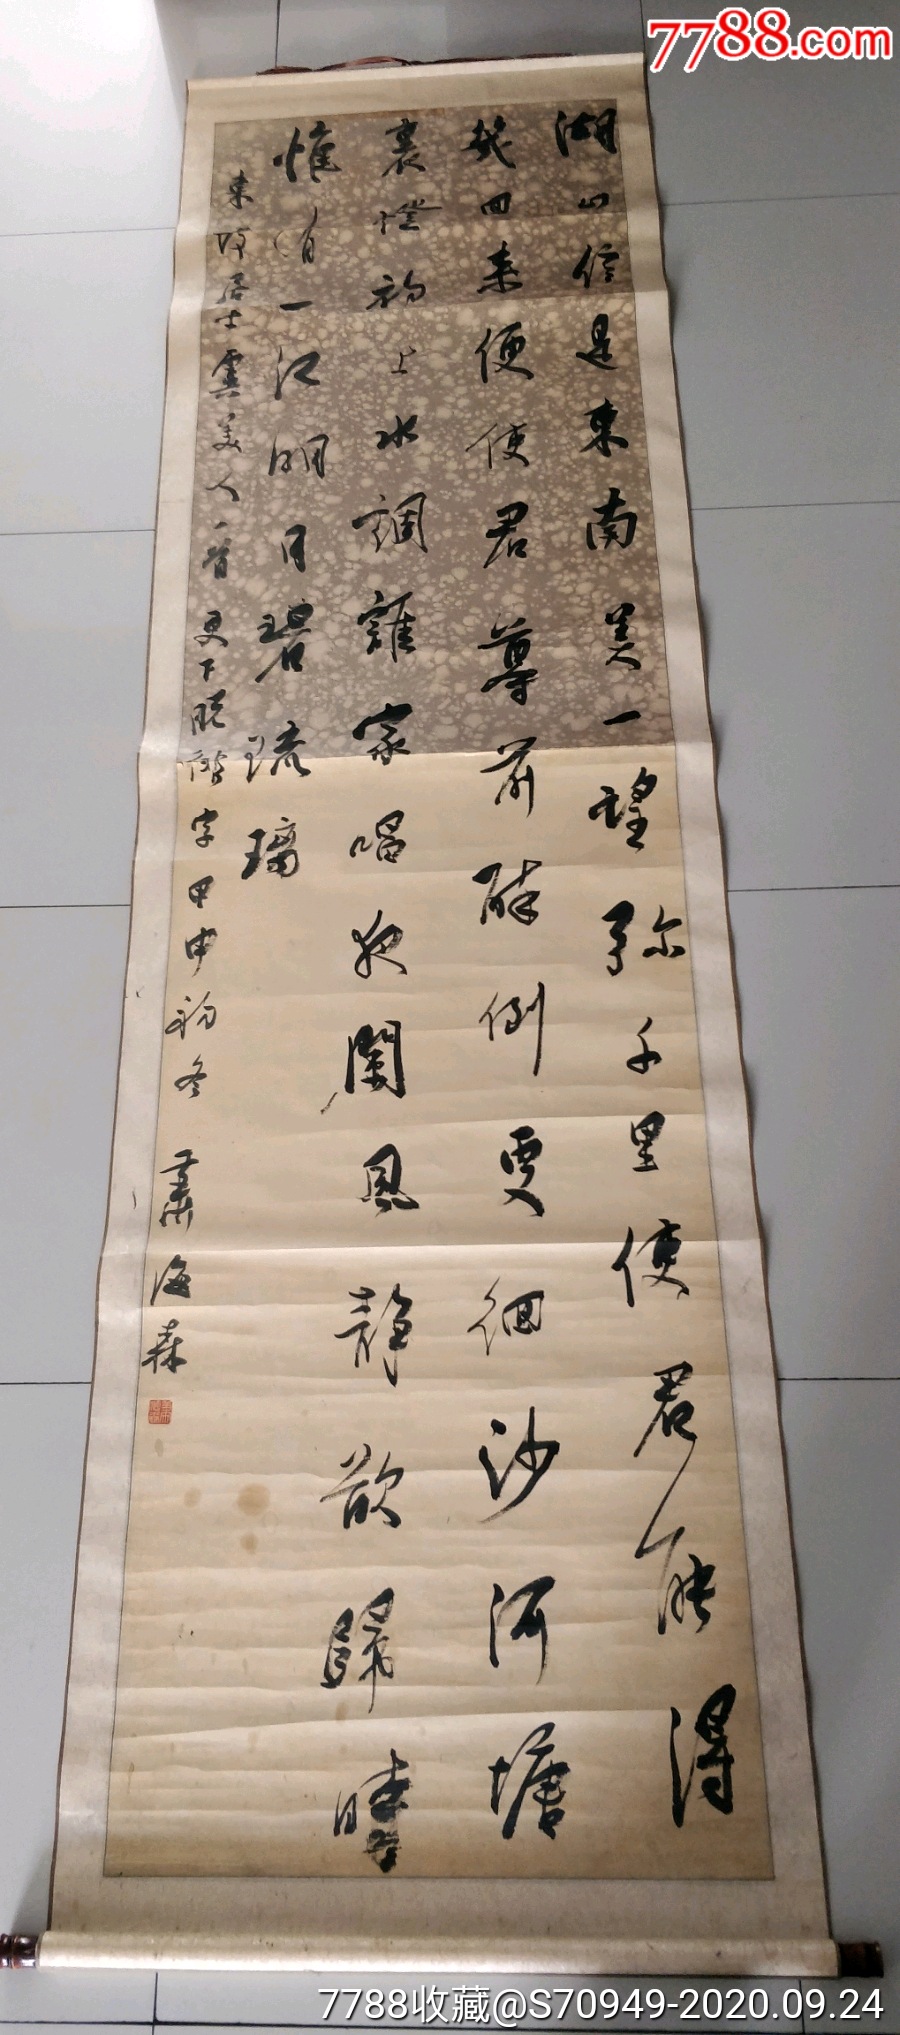 7788.com
湖山信是東南美一望弥千里使君能得
幾回来便使君尊前醉倒更徊沙河塘
裏燈初上水調誰家唱夜闌風静欲歸時
惟有一江明月碧琉璃
東坡居士虞美人一首更下脱徘字甲申初冬 蕭海森
7788收藏@S70949-2020.09.24